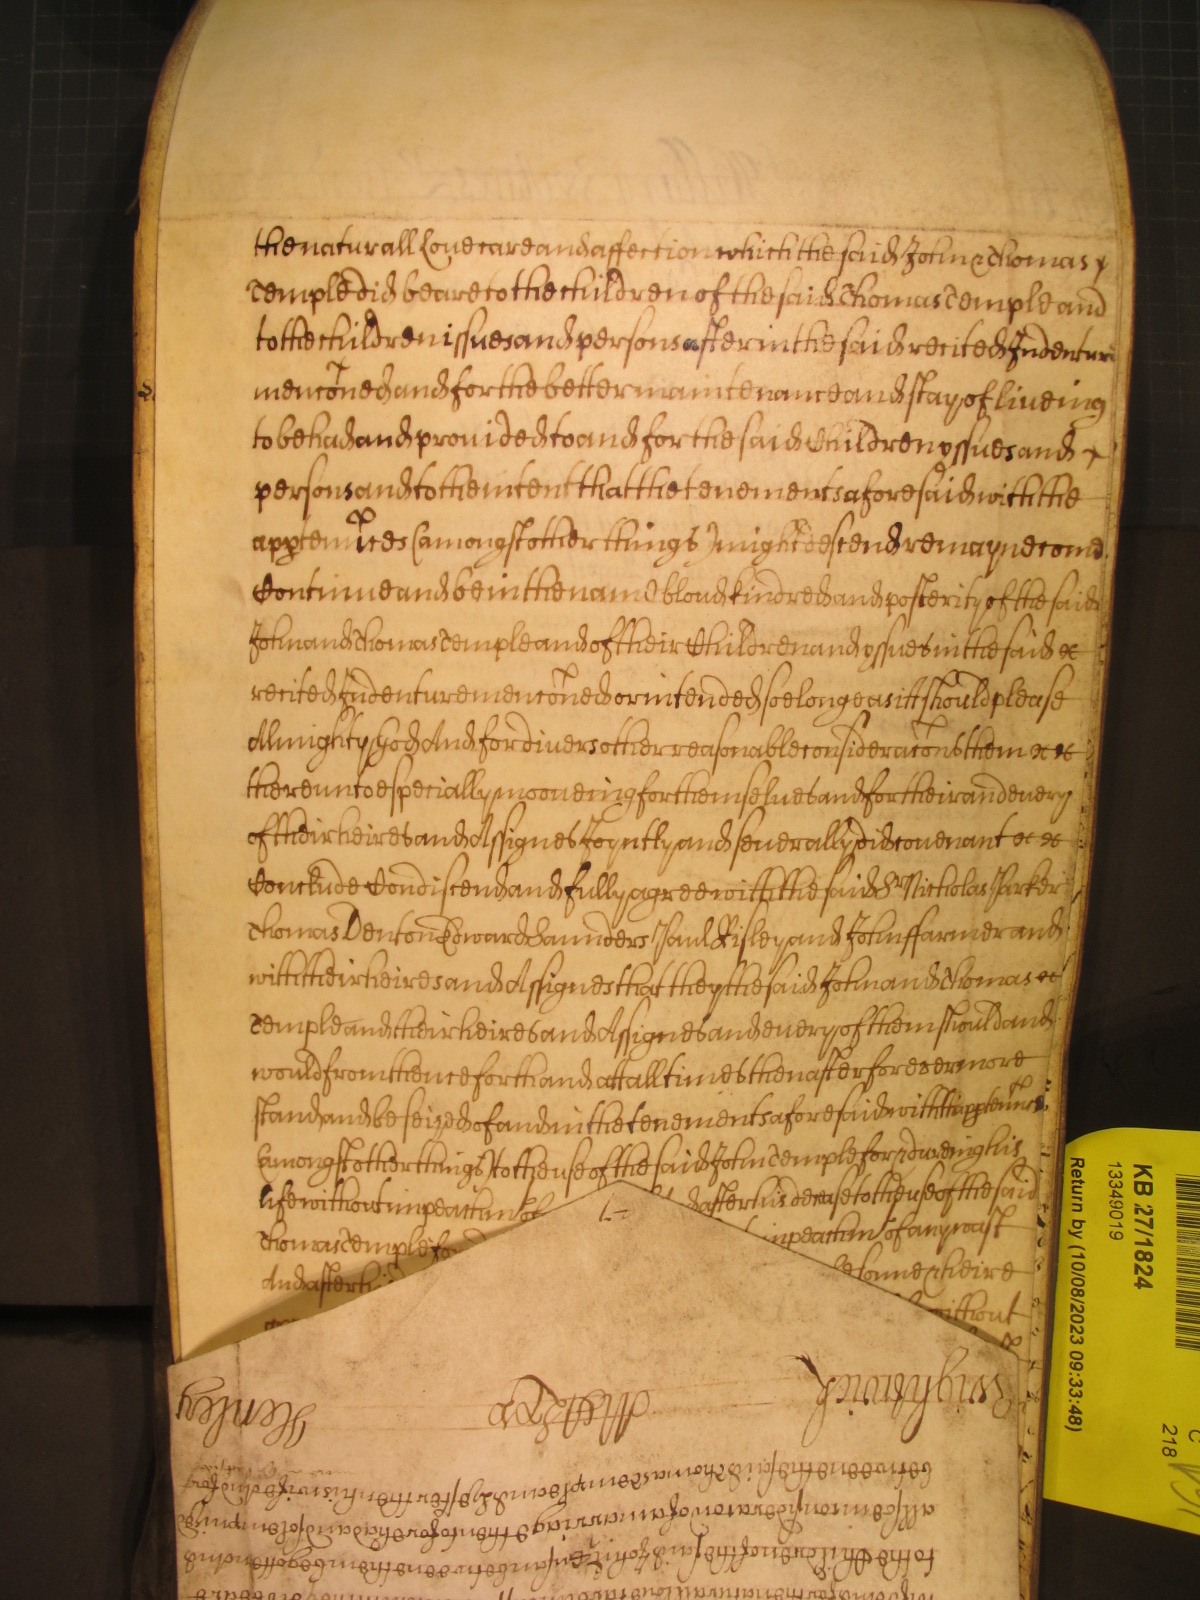 the naturall Love care and affection which the said John & Thomas
Temple did beare to the children of the said Thomas Temple and
to the children issues and persons after in the said recited Indenture
menconed and for the better maintenance and stay of liveing
to be had and provided to and for the said Children yssues and
persons and to the intent that the tenements aforesaid with the
apptenncies (amongst other things) might descend remayne come
Continue and be in the name bloud kindred and posterity of the said
John and Thomas Temple and of their Children and yssues in the said
recited Indenture menconed or intended soe longe as itt should please
Allmighty God And for divers other reasonable consideracons them
thereunto especially mooveing for themselves and for their and every
of their heires and Assignes Joyntly and severally did covenant
Conclude Condiscend and fully agree with the said Sr Nicholas Parker
Thomas Denton Edward Chaunders Paul Risley and John ffarmer and
with their heires and Assignes that they the said John and Thomas
Temple and their heires and Assignes and every of them should and
would from thence forth and att all times then after for evermore
stand and be seized of and in the tenements aforesaid with thapptennces
(amongst other things) to the use of the said John Temple for & dureing his
life without impeachm of after his decease to the use of the said
Thomas Temple for impeachm of any wast
And after his sonne & heire
without
Wightwick
Henley
betweene the said Thomas Temple and Hester then his wife And for
allsoe in consideracon of a marriage theretofore had and solempnized
to the Children of the said John betweene them begotten and
KB 27/1824
13349019
Return by (10/08/2023 09:33:48)
C
218